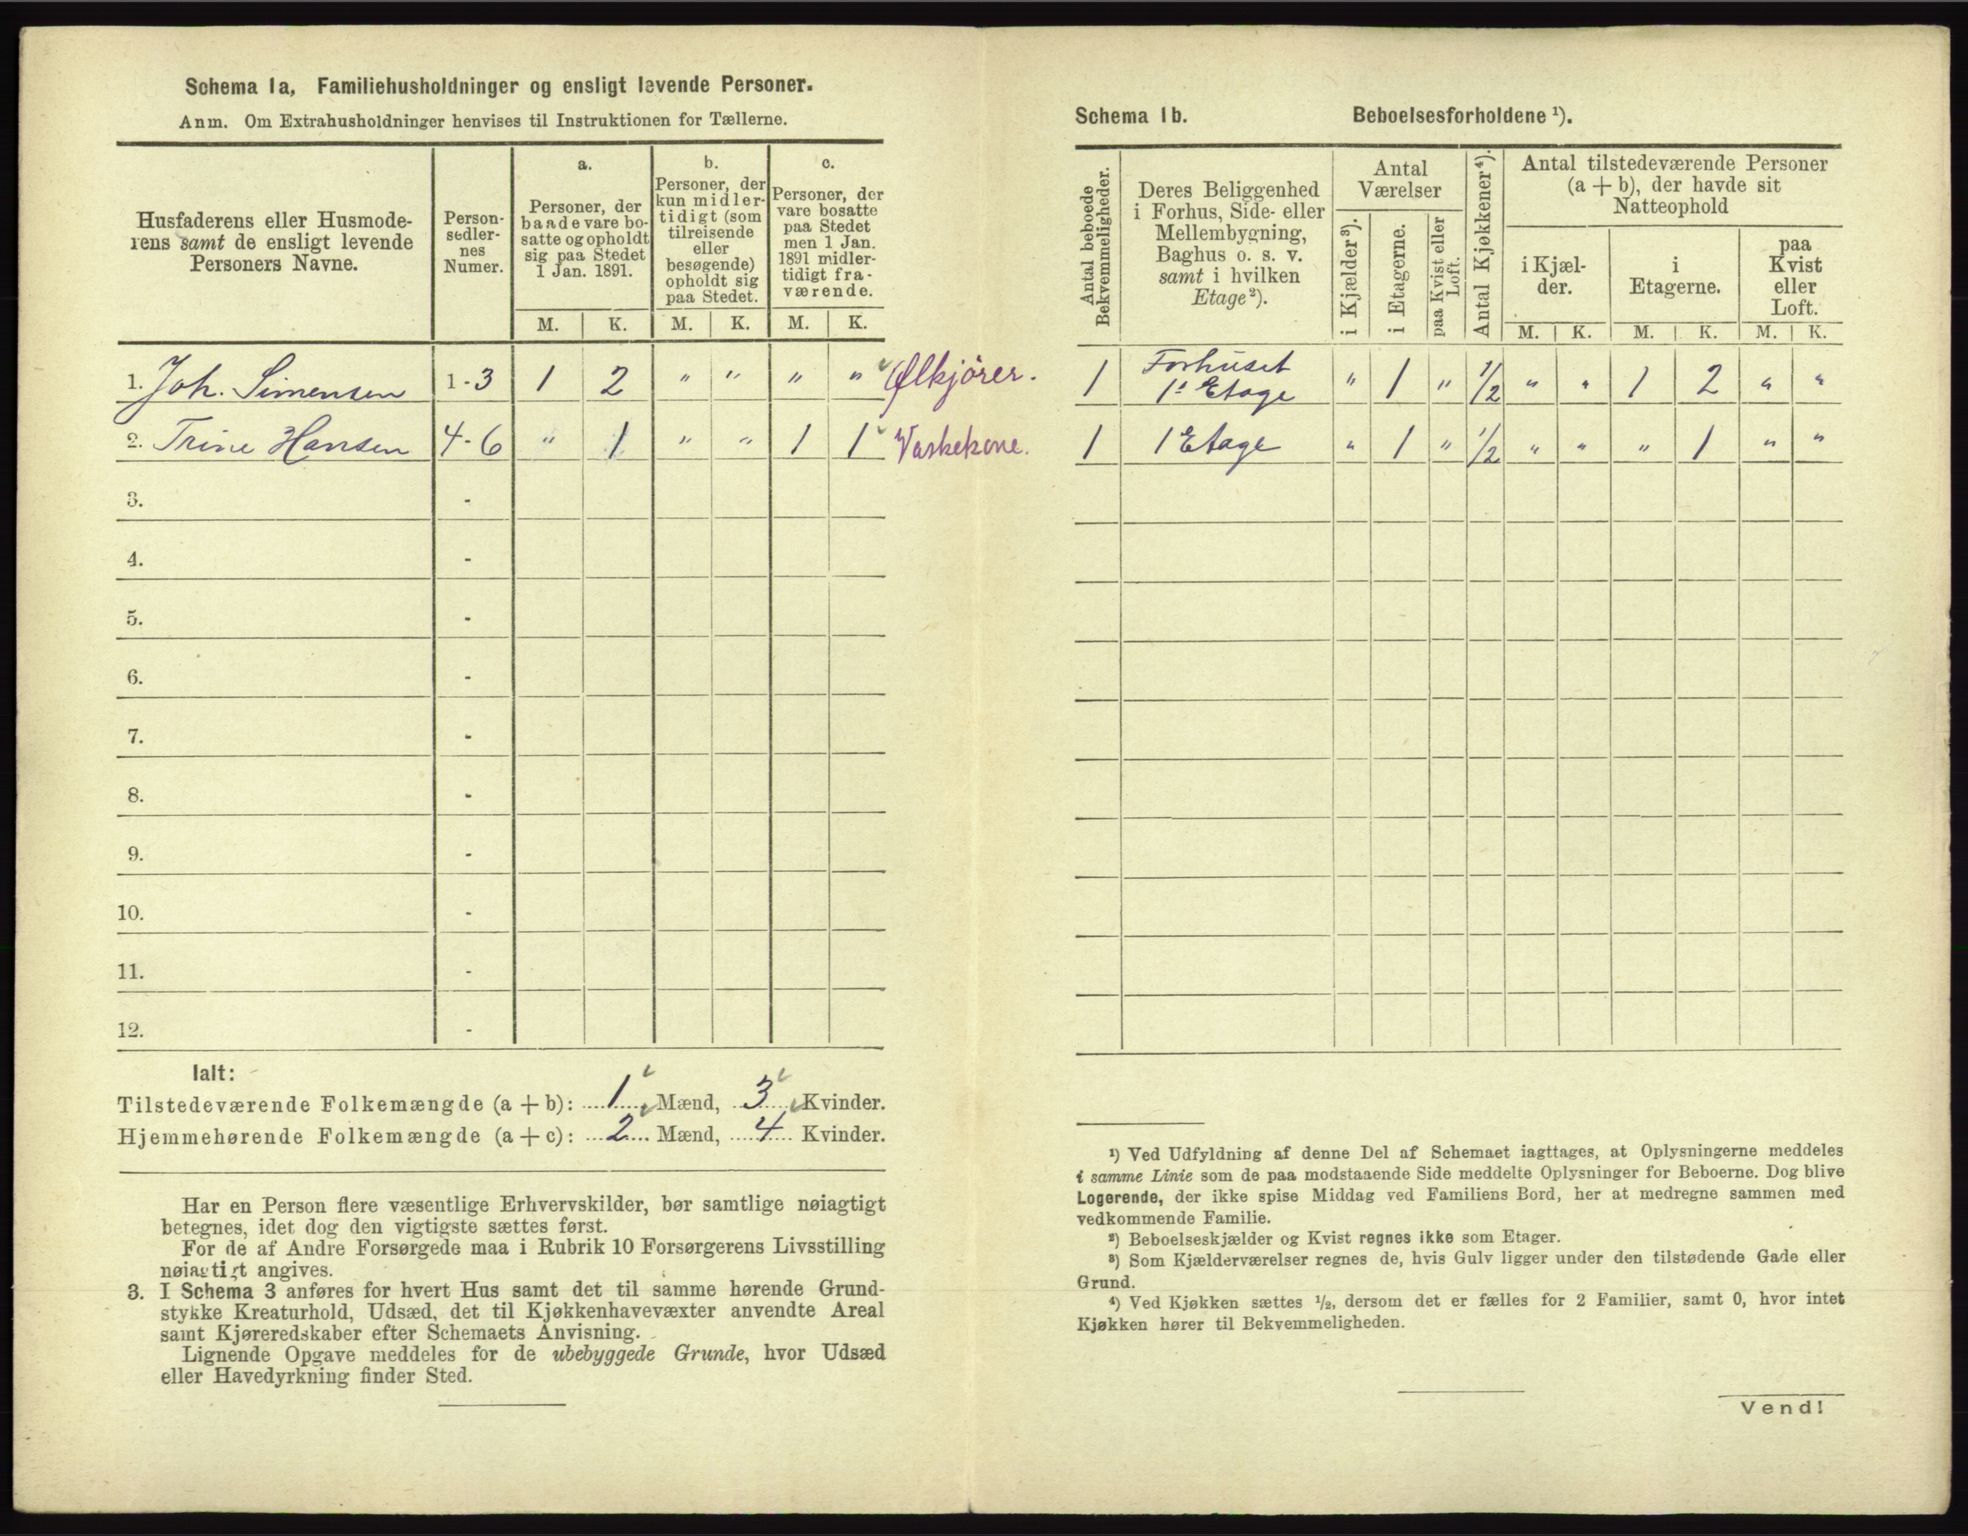 Schema 1a, Familiehusholdninger og ensligt levende Personer.
Anm. Om Extrahusholdninger henvises til Instruktionen for Tællerne.
Husfaderens eller Husmode-
rens samt de ensligt levende
Personers Navne.
Person-
sedler-
nes
Numer.
a.
Personer, der
baade vare bo-
satte og opholdt
sig paa Stedet
1 Jan. 1891.
b.
Personer, der
kun midler-
tidigt (som
tilreisende
eller
besøgende)
opholdt sig
paa Stedet.
c.
Personer, der
vare bosatte
paa Stedet
men 1 Jan.
1891 midler-
tidigt fra-
værende.
M. K. M. K. M. K.
1. Joh. Simensen 1-3 1 2 " " " " Ølkjörer.
2. Trine Hansen 4-6 " 1 " " 1 1 Vaskekone.
3. -
4. -
5. -
6. -
7. -
8. -
9. -
10. -
11. -
12. -
Ialt:
Tilstedeværende Folkemængde (a + b): 1 Mænd, 3 Kvinder.
Hjemmehørende Folkemængde (a + c): 2 Mænd, 4 Kvinder.
Har en Person flere væsentlige Erhvervskilder, bør samtlige nøiagtigt
betegnes, idet dog den vigtigste sættes først.
For de af Andre Forsørgede maa i Rubrik 10 Forsørgerens Livsstilling
nøiagtigt angives.
3. I Schema 3 anføres for hvert Hus samt det til samme hørende Grund-
stykke Kreaturhold, Udsæd, det til Kjøkkenhavevæxter anvendte Areal
samt Kjøreredskaber efter Schemaets Anvisning.
Lignende Opgave meddeles for de ubebyggede Grunde, hvor Udsæd
eller Havedyrkning finder Sted.
Schema 1b. Beboelsesforholdene ¹).
Antal beboede
Bekvemmeligheder.
Deres Beliggenhed
i Forhus, Side- eller
Mellembygning,
Baghus o. s. v.
samt i hvilken
Etage ²).
Antal
Værelser
i Kjælder ³).
i Etagerne.
paa Kvist eller
Loft.
Antal Kjøkkener ⁴).
Antal tilstedeværende Personer
(a + b), der havde sit
Natteophold
i Kjæl-
der.
i
Etagerne.
paa
Kvist
eller
Loft.
M. K. M. K. M. K.
1 Forhuset
1ᵗ Etage " 1 " 1/2 " " 1 2 " "
1 1 Etage " 1 " 1/2 " " " 1 " "
¹) Ved Udfyldning af denne Del af Schemaet iagttages, at Oplysningerne meddeles
i samme Linie som de paa modstaaende Side meddelte Oplysninger for Beboerne. Dog blive
Logerende, der ikke spise Middag ved Familiens Bord, her at medregne sammen med
vedkommende Familie.
²) Beboelseskjælder og Kvist regnes ikke som Etager.
³) Som Kjælderværelser regnes de, hvis Gulv ligger under den tilstødende Gade eller
Grund.
⁴) Ved Kjøkken sættes ½, dersom det er fælles for 2 Familier, samt 0, hvor intet
Kjøkken hører til Bekvemmeligheden.
Vend!